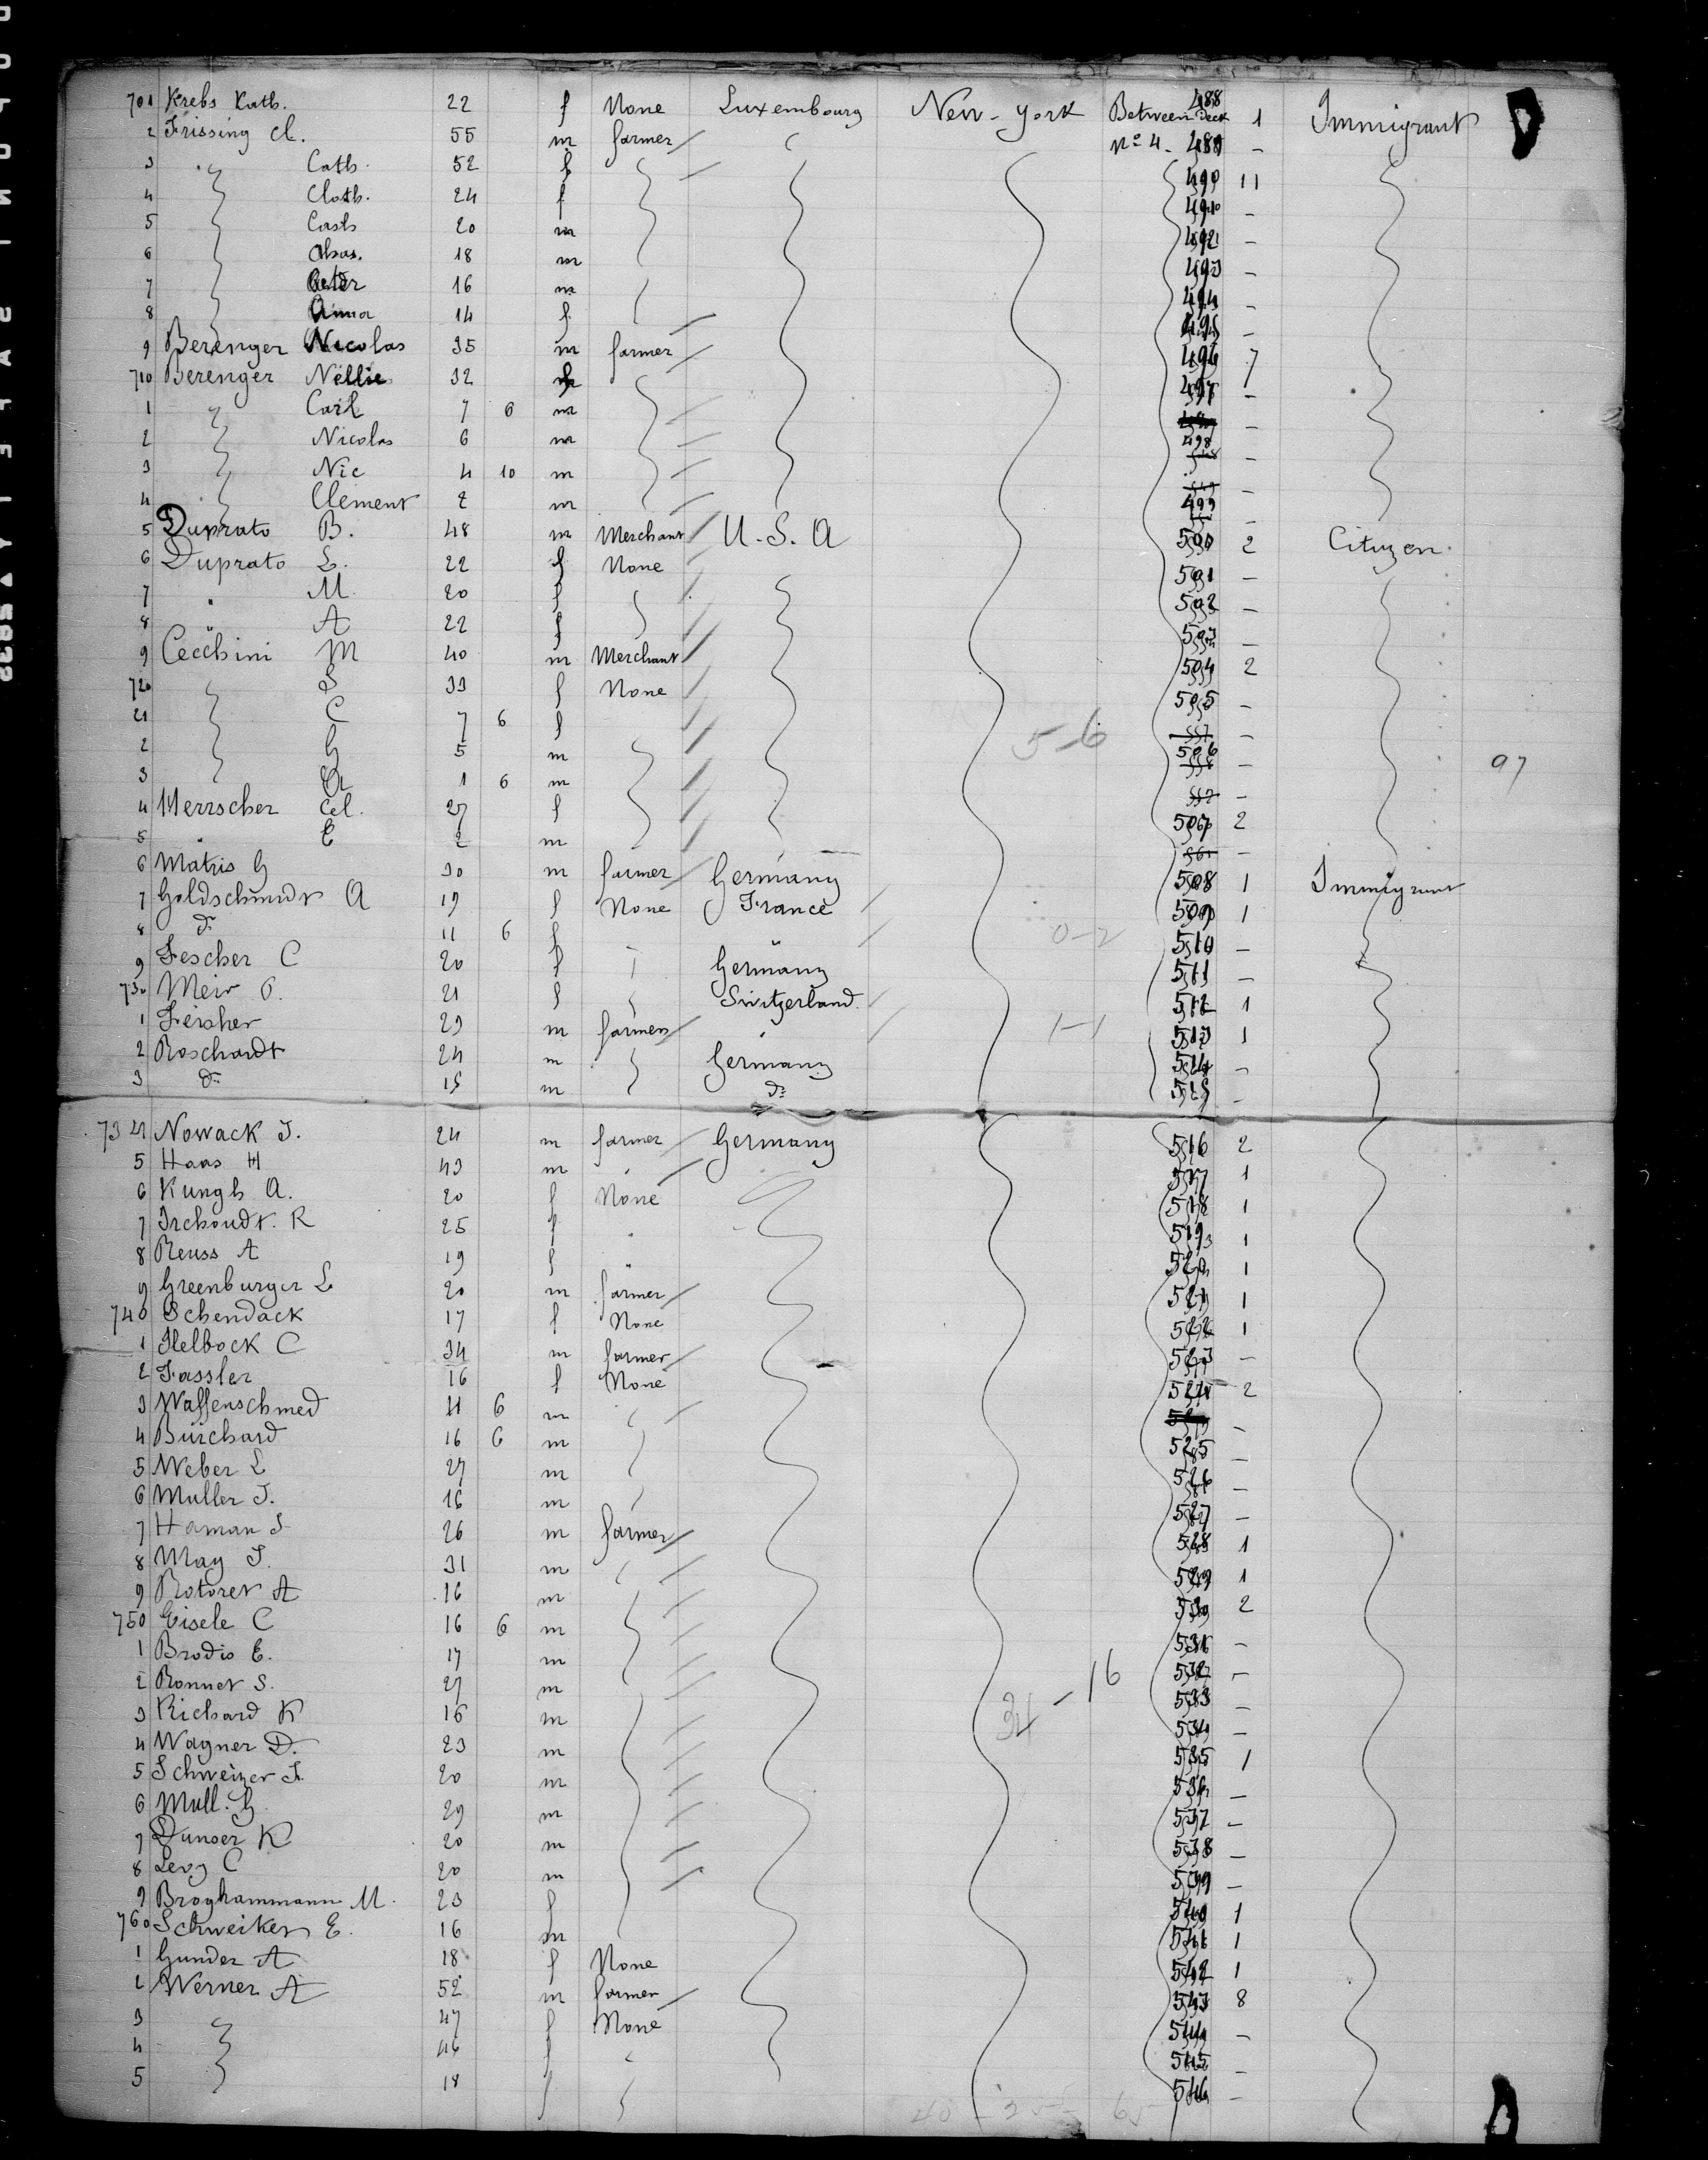 701 Krebs Kath. 22 f None Luxembourg New-York Between Deck 488 1 Immigrant
2 Frissing Cl. 55 m farmer " No 4 - 489 -
3 " Cath. 52 f 490 11
4 Cloth. 24 f 491 -
5 Cath 20 m 492 -
6 Chas. 18 m 493 -
7 Peter 16 m 494 -
8 Anna 14 f 495 -
9 Berenger Nicolas 35 m farmer 496 7
710 Berenger Nellie 32 f 497 -
1 " Carl 7 6 m -
2 Nicolas 6 m 498 -
3 Nic 4 10 m -
4 Clement 2 m 499 -
5 Duprato B. 48 m Merchant U.S.A 500 2 Cityzen.
6 Duprato L. 22 f None 501 -
7 " M. 20 f 502 -
8 " A 22 f 503 -
9 Cecchini M 40 m Merchant 504 2
720 S 33 f None 505 -
21 C 7 6 f 5-6 -
2 G 5 m 506 - 97
3 A 1 6 m -
4 Herrscher Cel. 27 f 507 2
5 " E 2 m -
6 Matris G 30 m farmer Germany 508 1 Immigrant
7 Goldschmidt A 19 f None France 509 1
8 do 11 6 f 0-2 510 -
9 Fescher C 20 f " Germany 511 -
730 Meir O. 21 f Switzerland 512 1
1 Feisher 29 m farmer " 1-1 513 1
2 Roschardt 24 m Germany 514 -
3 do 15 m do 515 -
734 Nowack J. 24 m farmer Germany 516 2
5 Haas H 43 m " 517 1
6 Kungh A. 20 f None 518 1
7 Irchoudt. R 25 f " 519 1
8 Reuss A 19 f " 520 1
9 Greenburger L 20 m farmer 521 1
740 Schendack 17 f None 522 1
1 Helbock C 34 m farmer 523 -
2 Fassler 16 f None 524 2
3 Waffenschmed 11 6 m -
4 Burchard 16 6 m 525 -
5 Weber L 27 m 526 -
6 Muller J. 16 m 527 -
7 Haman S 26 m farmer 528 1
8 May J. 31 m 529 1
9 Rotorer A 16 m 530 2
750 Eisele C 16 6 m 531 -
1 Brodio E. 17 m 532 -
2 Ronner S. 27 m 34-16 533 -
3 Richard K 16 m 534 -
4 Wagner D. 23 m 535 1
5 Schweizer J. 20 m 536 -
6 Mull. G 29 m 537 -
7 Dunser K 20 m 538 -
8 Levy C 20 m 539 -
9 Broghammann M. 23 f 540 1
760 Schweiker E. 16 m 541 1
1 Gunder A 18 f None 542 1
2 Werner A 52 m farmer 543 8
3 47 f None 544 -
4 46 f " 545 -
5 18 f 546 -